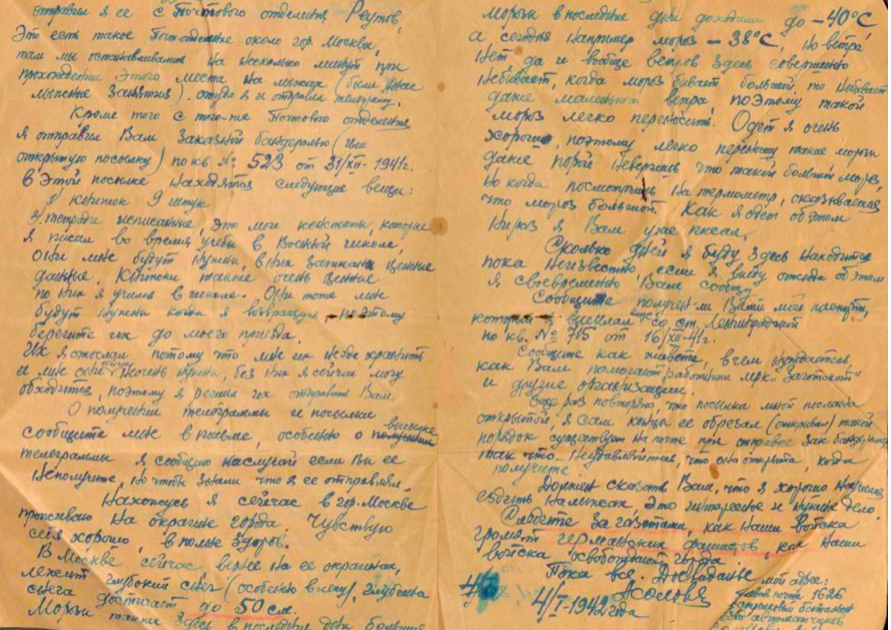 отправил я ее с Почтового отделения Реутов,
Это есть такое Почт-отделение около гор. Москвы,
там мы останавливались на несколько минут при
прохождении этого места на лыжах (были у нас
лыжные занятия). оттуда я и отправил телеграмму.
Кроме того с того-же Почтового отделения
я отправил Вам заказной бандеролью (или
открытую посылку) по кв. № 523 от 31/XII-1941г.
В этой посылке находятся следующие вещи:
книжек 9 штук
3 тетради исписанные, это мои конспекты, которые
я писал во время учебы в Военной школе,
Они мне будут нужны, в них записаны ценные
данные. Книжки также очень ценные
по ним я учился в школе. Они тоже мне
будут нужны когда я возвращусь, поэтому
берегите их до моего приезда.
Их я отослал потому что мне их негде хранить
и мне они не очень нужны, без них я сейчас могу
обходится, поэтому я решил их отправить Вам.
О получении телеграммы и посылки
сообщите мне в письме, особенно о
телеграммы я сообщаю на случай если Вы ее
неполучите, но чтобы знали что я ее отправлял.
Нахожусь я сейчас в гор. Москве
проживаю на окраине города Чувствую
себя хорошо, вполне здоров.
В Москве сейчас вернее на ее окраинах,
лежит глубокий снег (особенно в лесу), глубина
снега достигает до 50 см.
Морозы также здесь в последние дни большие
морозы в последние дни доходили до -40°С
а сегодня например мороз -38°С, но ветра
нет, да и вообще ветров здесь совершенно
небывает, когда мороз бывает большой, то небывает
даже маленького ветра, поэтому такой
мороз легко переносить. Одет я очень
хорошо, поэтому легко переношу такие морозы
даже порой неверишь что такой большой мороз,
но когда посмотришь на термометр, оказывается
что мороз большой. Как я одет об этом
я Вам уже писал.
Сколько дней я буду здесь находится
пока неизвестно, если я выеду отсюда об этом
я своевременно Вам сообщу.
Сообщите получен-ли Вами мой паспорт,
который я высылал еще со ст. Ленинградской
по кв. № 715 от 16/XII-41г.
Сообщите как живете, в чем нуждаетесь,
как Вам помогают работники "Заготскот"
и другие организации.
Еще раз повторяю, что посылка мной послана
открытой, я сам концы ее обрезал (открывал) такой
порядок существует на почте при отправке зак. бандеролью
так что неудивляйтесь, что она открыта, когда
получите.
Должен сказать Вам, что я хорошо научился
ездить на лыжах, это интересное и нужное дело.
Следите за газетами, как наши войска
громят германских фашистов, как наши
войска освобождают города.
Пока все. Досвидание
4/I-1942 года
мой адрес:
почта 1626
батальон
рота автоматчиков